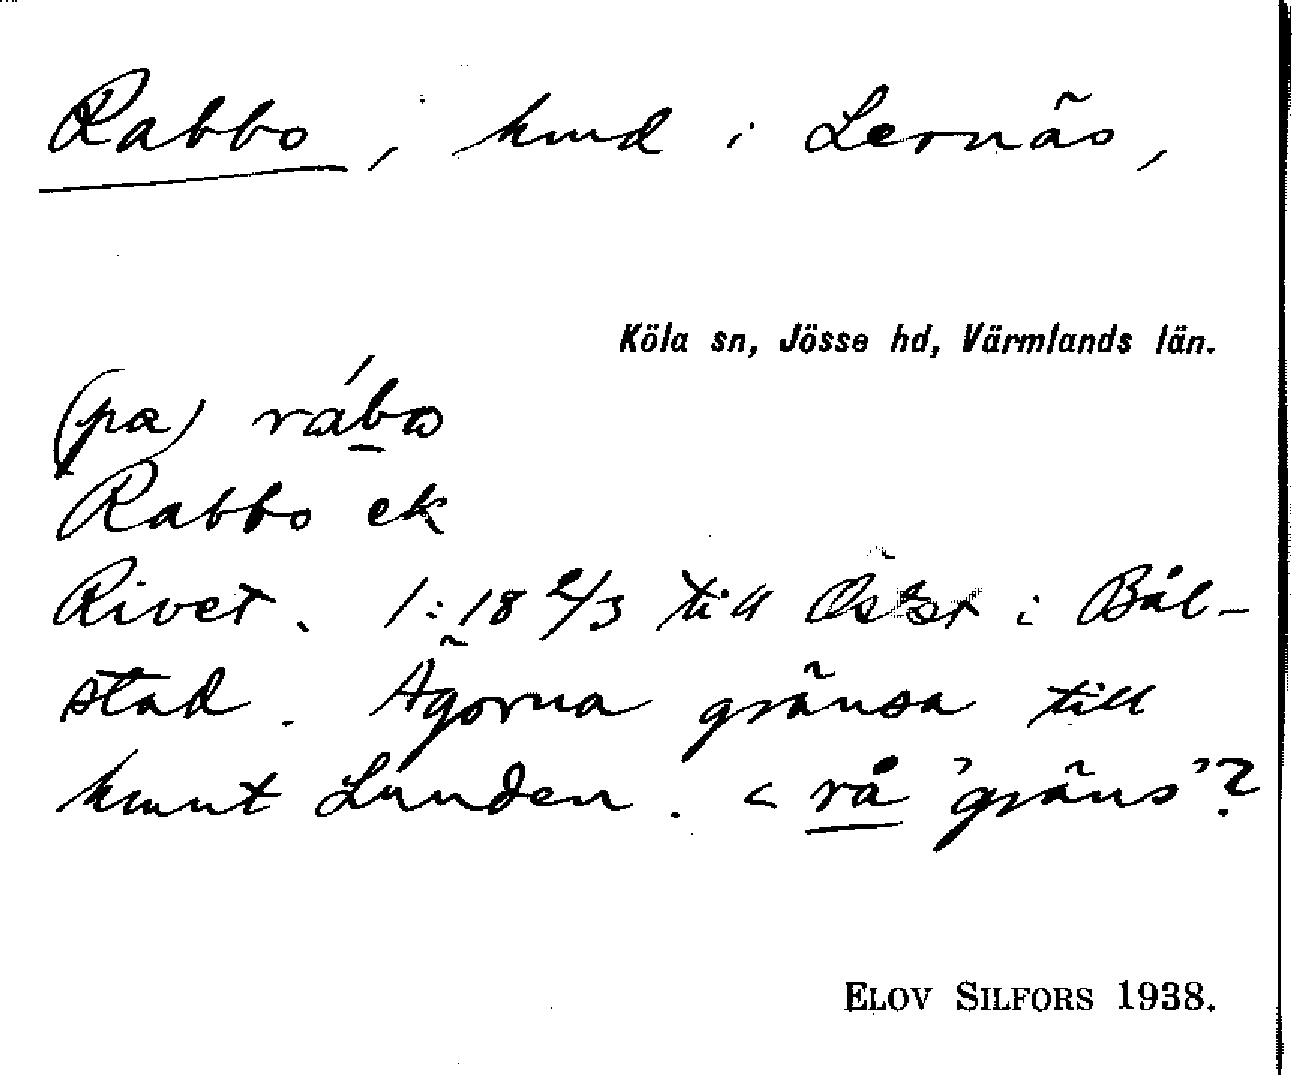 Rabbo, hmd i Lernäs,
Köla sn, Jösse hd, Värmlands län.
(pa) rábω
Rabbo ek
Rivet. 1:18 2/3 till Östst i Bål-
stad. Ägorna gränsa till
hmnt Lunden. < rå 'gräns'?
ELOV SILFORS 1938.